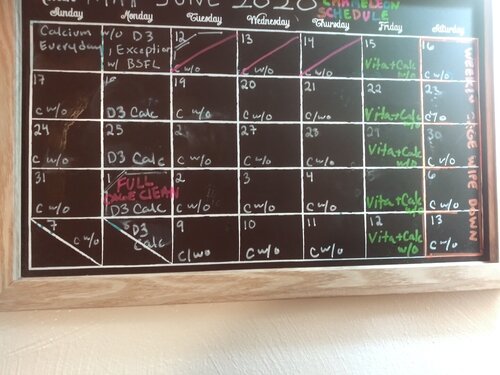 MAY JUNE 2020
CHAMELEON
SCHEDULE
Sunday Tuesday Wednesday Thursday Friday Saturday
Calcium w/o D3
Everyday ; Exception
w/ BSFL
12 13 14 15 16
c w/o c w/o c w/o Vita+Calc w/o c w/o
17 18 19 20 21 22 23
c w/o D3 Calc c w/o c w/o c w/o Vita+Calc w/o c w/o
24 25 27 29 30
c w/o D3 Calc c w/o c w/o c w/o Vita+Calc w/o c w/o
31 1 2 3 4 5 6
FULL
CAGE CLEAN
c w/o D3 Calc c w/o c w/o c w/o Vita+Calc w/o c w/o
7 9 10 11 12 13
c w/o D3 Calc c/wo c w/o c w/o Vita+Calc w/o c w/o
WIPE DOWN